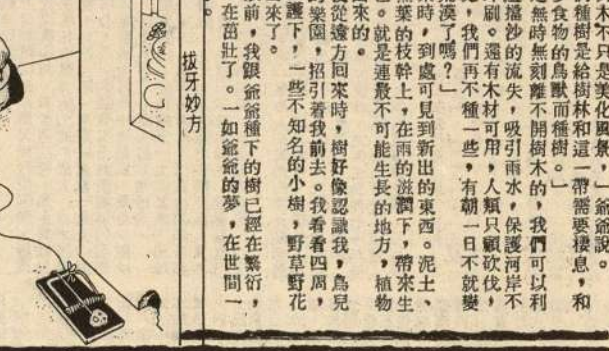 木不只是美化風景，」爺爺說。
的種樹是給樹林和這一帶需要棲息，和
食物的鳥獸而種樹。」
無時無刻離不開樹木的，我們可以利
擋沙的流失，吸引雨水，保護河岸不
刷。還有木材可用，人類只顧砍伐，
，我們再不種一些，有朝一日不就變
漠了嗎？」
時，到處可見到新出的東西。泥土、
葉的枝幹上，在雨的滋潤下，帶來生
。就是連最不可能生長的地方，植物
來的。
從遠方回來時，樹好像認識我，鳥兒
樂園，招引着我前去。我看看四周，
護下，一些不知名的小樹，野草野花
來了。
前，我跟爺爺種下的樹已經在繁衍，
在茁壯了。一如爺爺的夢，在世間一
。
拔牙妙方